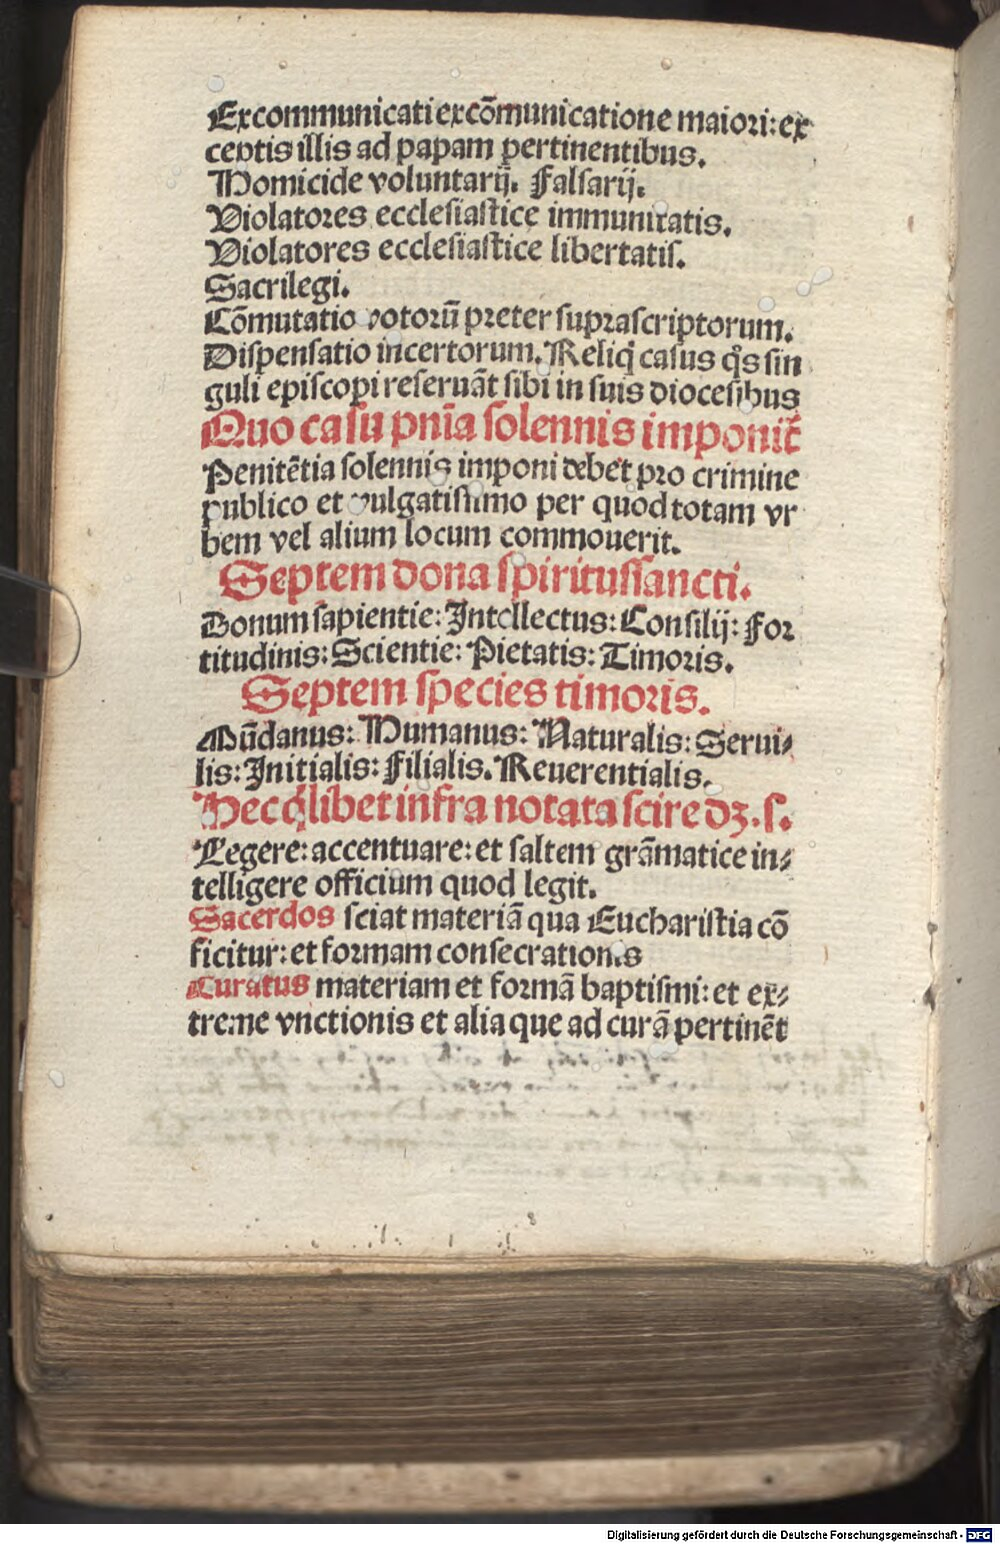 Excommunicati excōmunicatione maiori: ex
ceptis illis ad papam pertinentibus.
Homicide voluntarij. Falsarij.
Violatores ecclesiastice immunitatis.
Violatores ecclesiastice libertatis.
Sacrilegi.
Cōmutatio votorū preter suprascriptorum.
Dispensatio incertorum. Reliq̄ casus q̊s sin
guli episcopi reseruāt sibi in suis diocesibus
Quo casu pnīa solennis imponit̄
Penitētia solennis imponi debet pro crimine
publico et vulgatissimo per quod totam vr
bem vel alium locum commouerit.
Septem dona spiritussancti.
Donum sapientie: Intellectus: Consilij: For
titudinis: Scientie: Pietatis: Timoris.
Septem species timoris.
Mūdanus: Humanus: Naturalis: Serui⸗
lis: Initialis: Filialis. Reuerentialis.
Hec q̄libet infra notata scire dꝫ. s.
Legere: accentuare: et saltem grāmatice in⸗
telligere officium quod legit.
Sacerdos sciat materiā qua Eucharistia cō
ficitur: et formam consecrationis
Curatus materiam et formā baptismi: et ex⸗
treme vnctionis et alia que ad curā pertinēt
Digitalisierung gefördert durch die Deutsche Forschungsgemeinschaft - DFG